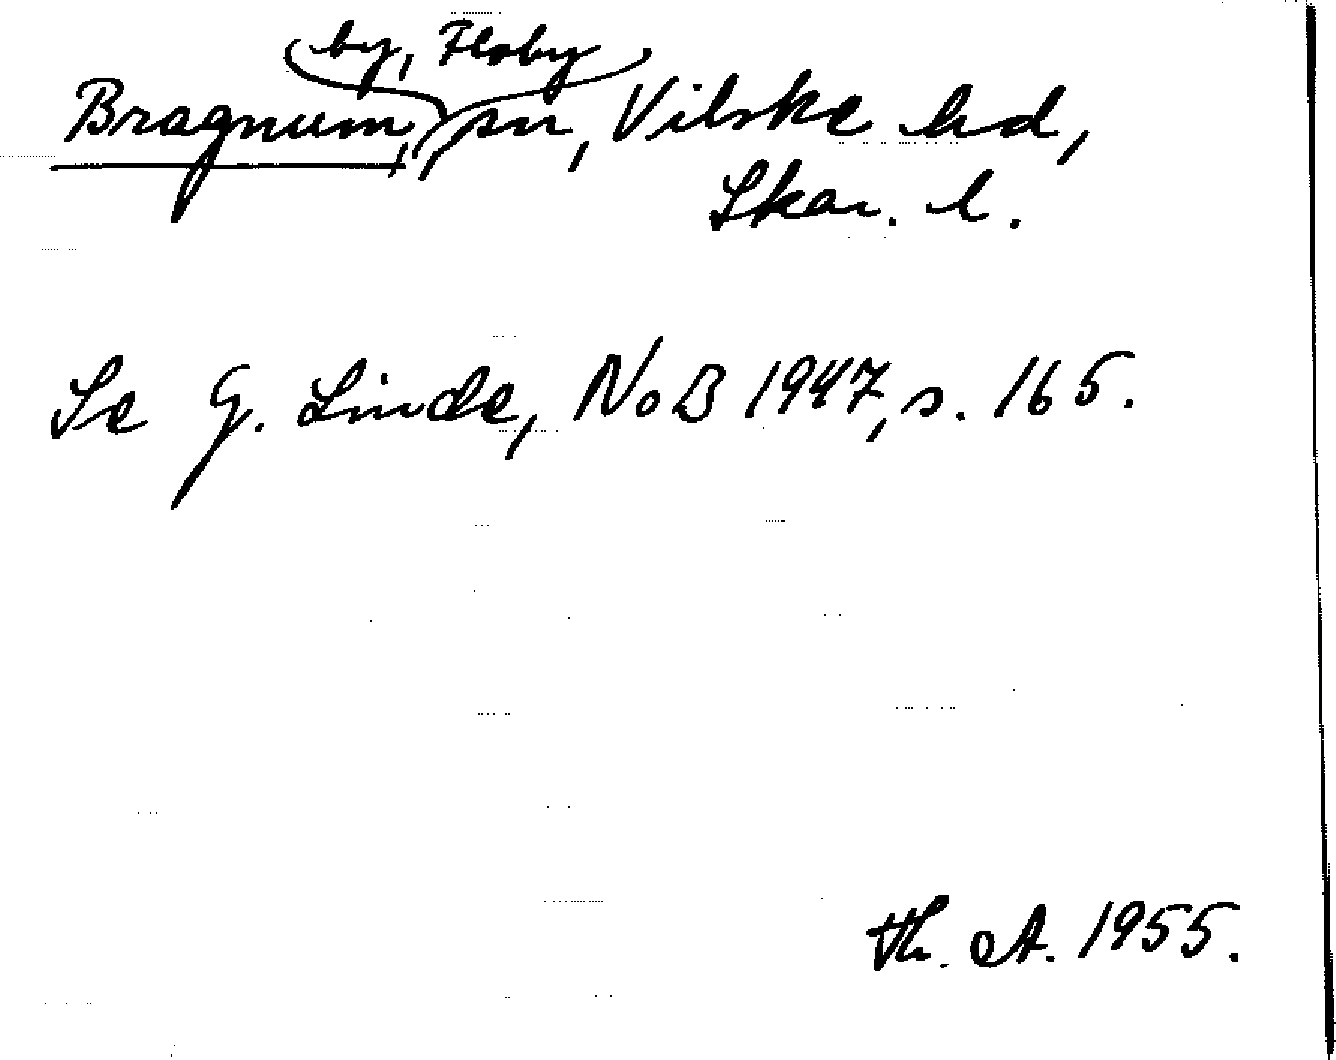 by, Floby
Bragnum, sn, Vilske hd,
Skar. l.
Se G. Linde, NoB 1947, s. 165.
Th. A. 1955.